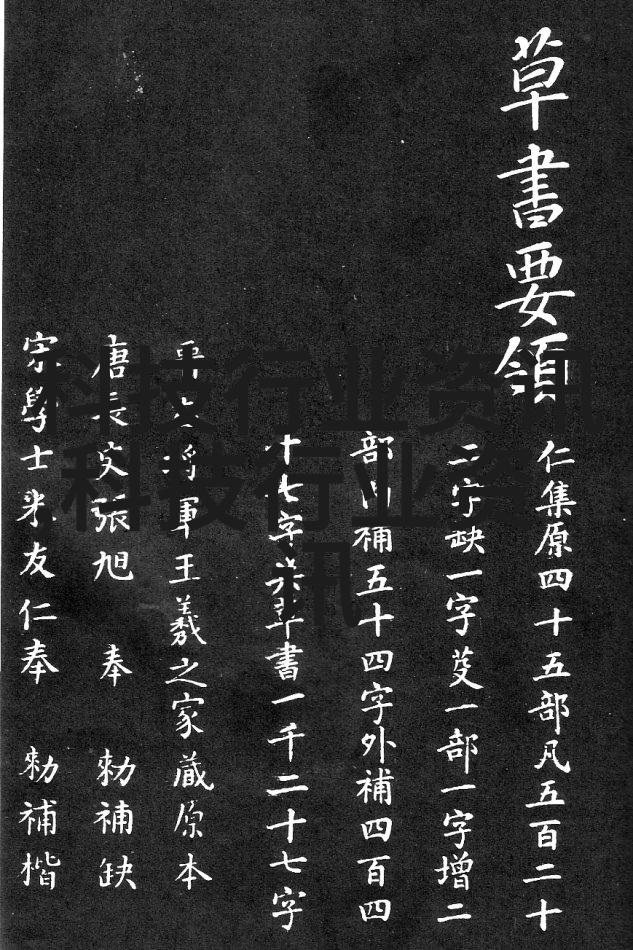 草書要領
仁集原四十五部凡五百二十
二字缺一字芟一部一字增二
部內補五十四字外補四百四
十七字共草書一千二十七字
平六將軍王羲之家藏原本
唐長史張旭 奉 勑補缺
宋學士米友仁奉 勑補楷
科技行业资讯
科技行业资
讯